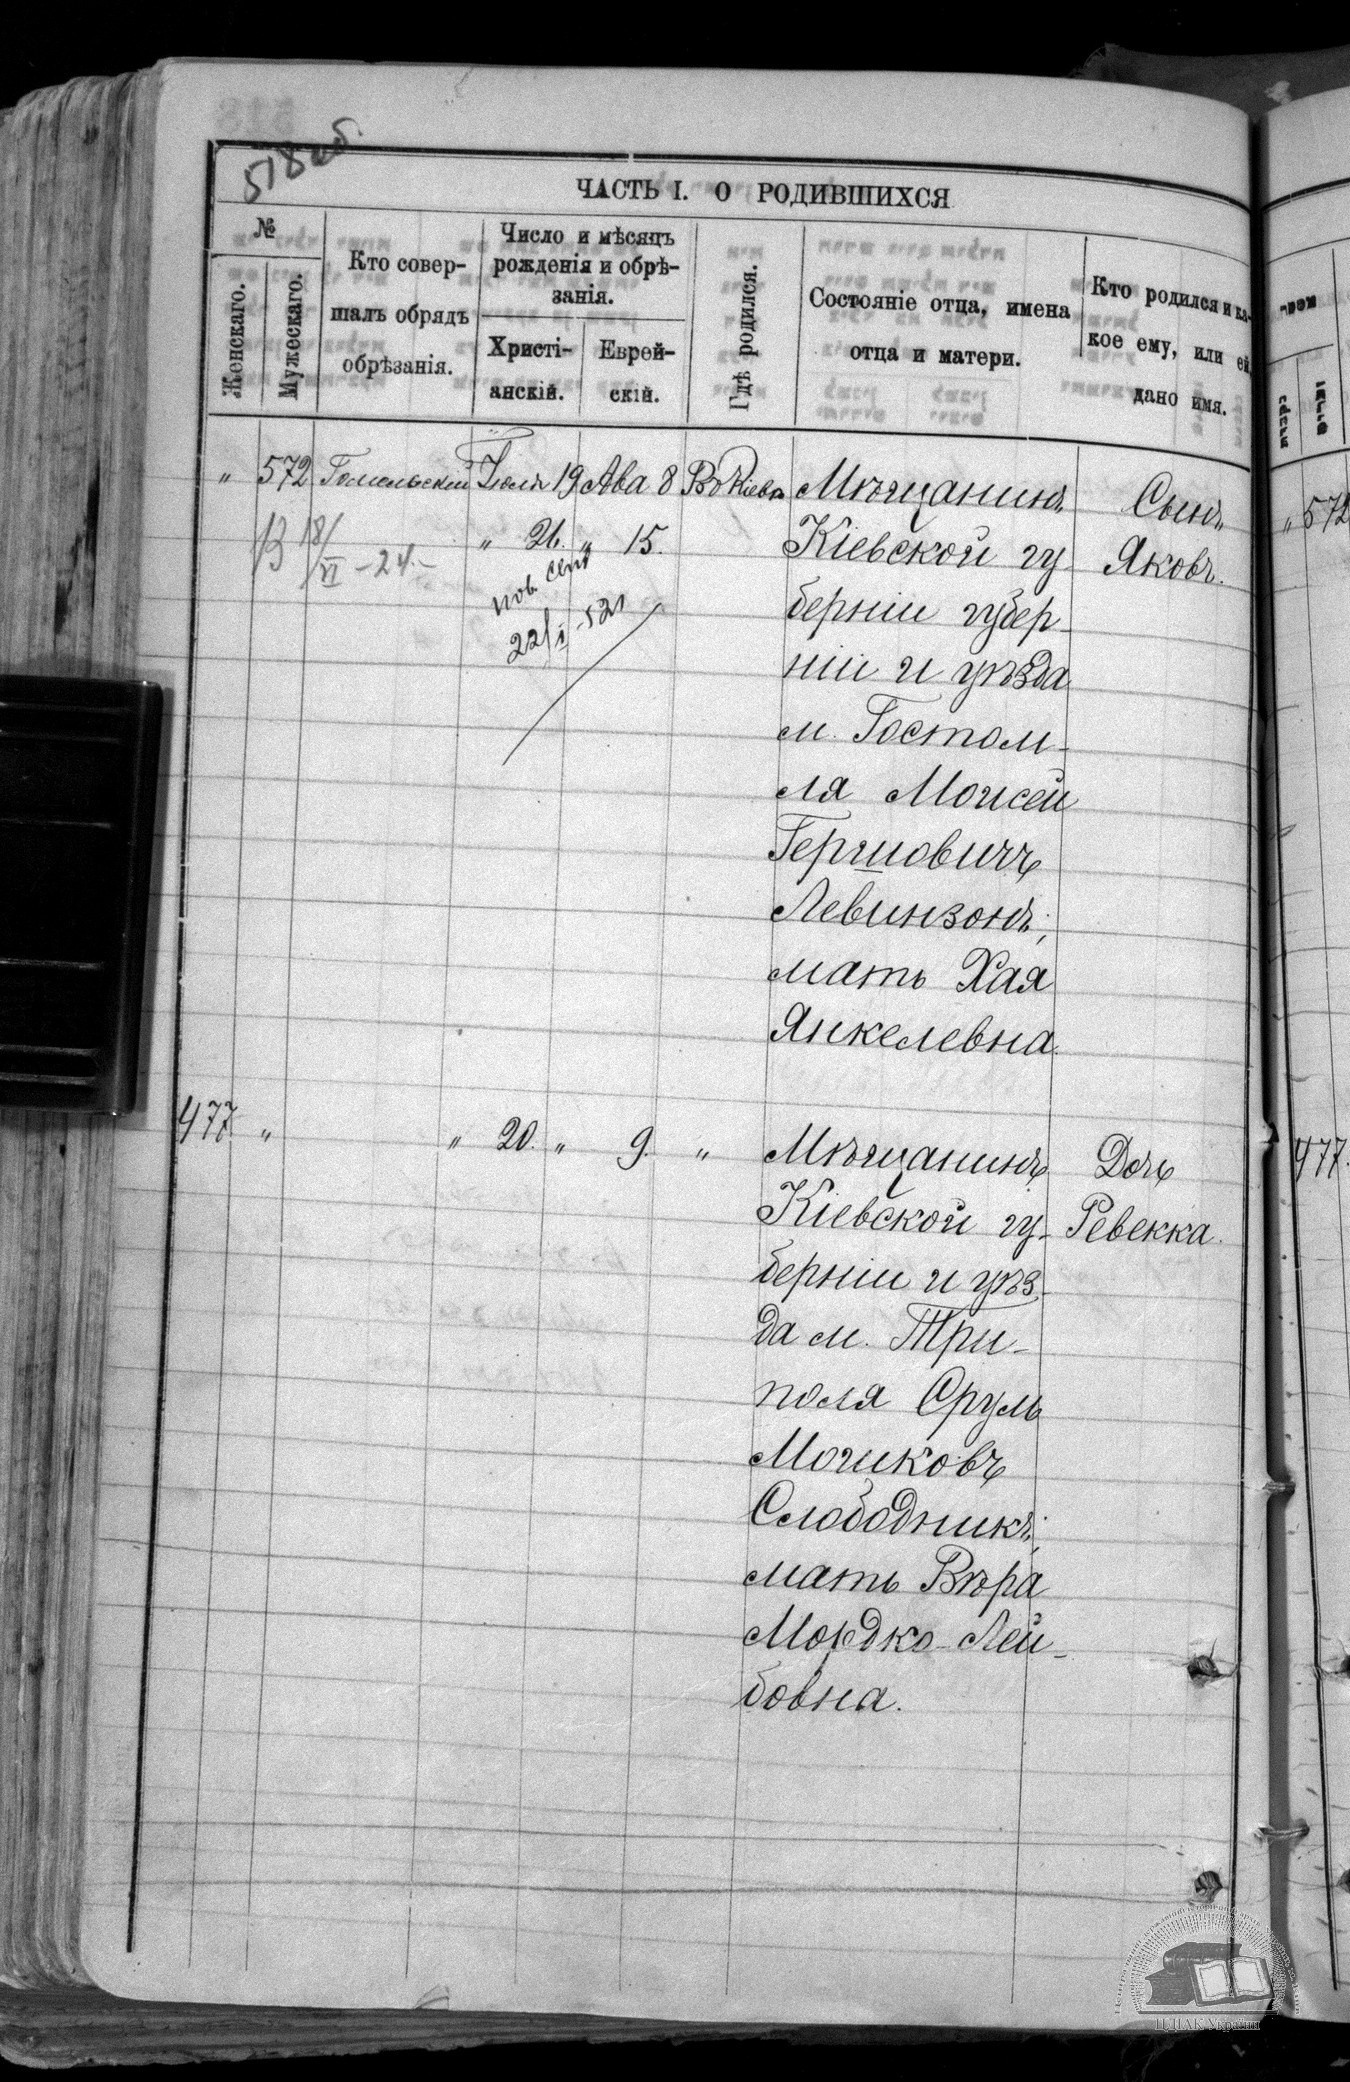 518 об.
ЧАСТЬ I. О РОДИВШИХСЯ
№
Женскаго.
Мужескаго.
Кто совер-
шалъ обрядъ
обрѣзанія.
Число и мѣсяцъ
рожденія и обрѣ-
занія.
Христі-
анскій.
Еврей-
скій.
Гдѣ родился.
Состояніе отца, имена
отца и матери.
Кто родился и ка-
кое ему, или ей,
дано имя.
„ 572 Гомельскій Іюля 19 Ава 8 Въ Кіевѣ
„ 26. „ 15.
18/VI – 24.–
пов. свид
22/I – 52
Мѣщанинъ
Кіевской гу-
берніи губер-
ніи и уѣзда
м. Гостом-
ля Моисей
Гершовичъ
Левинзонъ,
мать Хая
Янкелевна.
Сынъ
Яковъ.
477 „ „ 20. „ 9. „
Мѣщанинъ
Кіевской гу-
берніи и уѣз-
да м. Три-
полья Сруль
Мошковъ
Слободникъ,
мать Вѣра
Мордко-Лей-
бовна.
Дочь
Ревекка.
„ 572
477.
ЦДІАК України